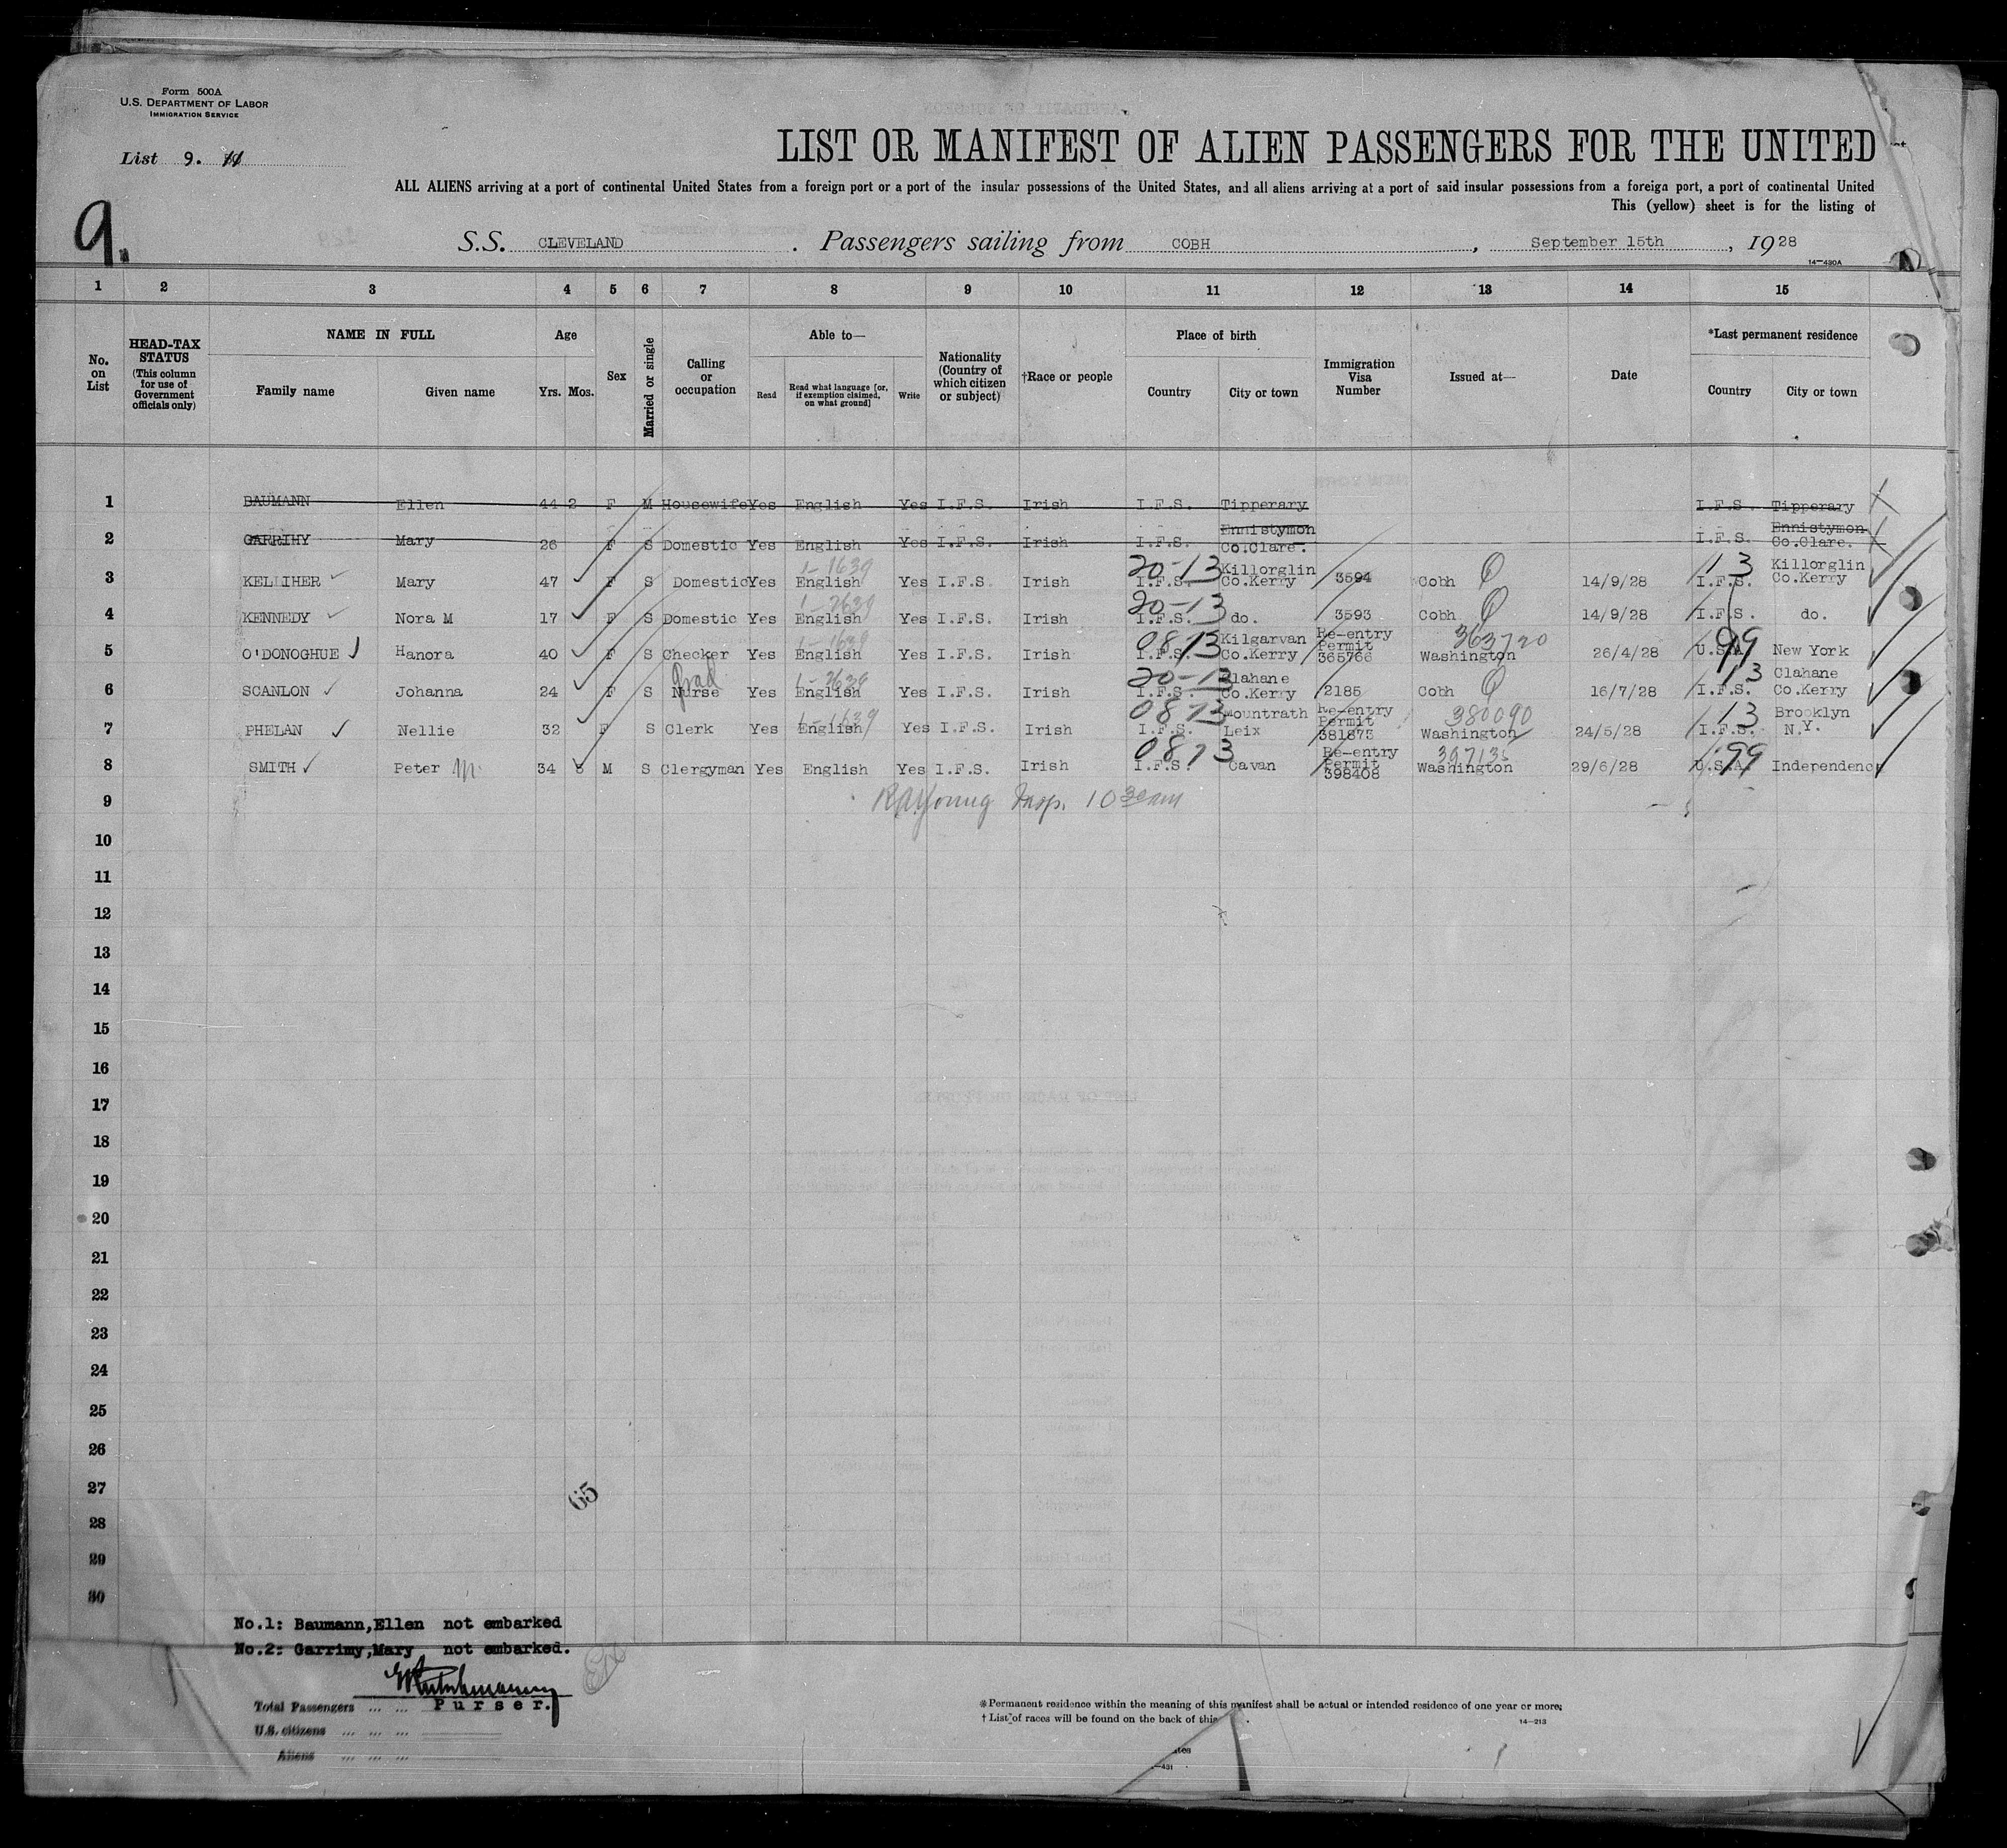 Form 500A
U.S. DEPARTMENT OF LABOR
IMMIGRATION SERVICE
List 9. 11
LIST OR MANIFEST OF ALIEN PASSENGERS FOR THE UNITED
ALL ALIENS arriving at a port of continental United States from a foreign port or a port of the insular possessions of the United States, and all aliens arriving at a port of said insular possessions from a foreign port, a port of continental United
This (yellow) sheet is for the listing of
9.
S.S. CLEVELAND. Passengers sailing from COBH, September 15th, 1928
14—430A
1 2 3 4 5 6 7 8 9 10 11 12 13 14 15
No. on List
HEAD-TAX STATUS (This column for use of Government officials only)
NAME IN FULL
Family name Given name
Age
Yrs. Mos.
Sex
Married or single
Calling or occupation
Able to—
Read
Read what language [or, if exemption claimed, on what ground]
Write
Nationality (Country of which citizen or subject)
†Race or people
Place of birth
Country City or town
Immigration Visa Number
Issued at—
Date
*Last permanent residence
Country City or town
1 BAUMANN Ellen 44 2 F M Housewife Yes English Yes I.F.S. Irish I.F.S. Tipperary I.F.S. Tipperary
2 GARRIHY Mary 26 F S Domestic Yes English Yes I.F.S. Irish I.F.S. Ennistymon Co.Clare. I.F.S. Ennistymon Co.Clare.
1-1639 20-13 13
3 KELLIHER Mary 47 F S Domestic Yes English Yes I.F.S. Irish I.F.S. Killorglin Co.Kerry 3594 Cobh 14/9/28 I.F.S. Killorglin Co.Kerry
1-2639 20-13
4 KENNEDY Nora M 17 F S Domestic Yes English Yes I.F.S. Irish I.F.S. do. 3593 Cobh 14/9/28 I.F.S. do.
1-1639 0813 363720 99
5 O'DONOGHUE Hanora 40 F S Checker Yes English Yes I.F.S. Irish I.F.S. Kilgarvan Co.Kerry Re-entry Permit 365766 Washington 26/4/28 U.S.A. New York
grad 1-2639 20-13 13
6 SCANLON Johanna 24 F S Nurse Yes English Yes I.F.S. Irish I.F.S. Clahane Co.Kerry 2185 Cobh 16/7/28 I.F.S. Clahane Co.Kerry
1-1639 0873 380090 13
7 PHELAN Nellie 32 F S Clerk Yes English Yes I.F.S. Irish I.F.S. Mountrath Leix Re-entry Permit 381873 Washington 24/5/28 I.F.S. Brooklyn N.Y.
0873 397135 99
8 SMITH Peter M. 34 8 M S Clergyman Yes English Yes I.F.S. Irish I.F.S. Cavan Re-entry Permit 398408 Washington 29/6/28 U.S.A. Independence
9 RAYoung Insp. 10 30 am
10
11
12
13
14
15
16
17
18
19
20
21
22
23
24
25
26
27
65
28
29
30
No.1: Baumann,Ellen not embarked
No.2: Garrimy,Mary not embarked.
Purser.
Total Passengers ... ...
U.S. citizens ... ... ...
Aliens ... ... ...
*Permanent residence within the meaning of this manifest shall be actual or intended residence of one year or more.
† List of races will be found on the back of this
14—213